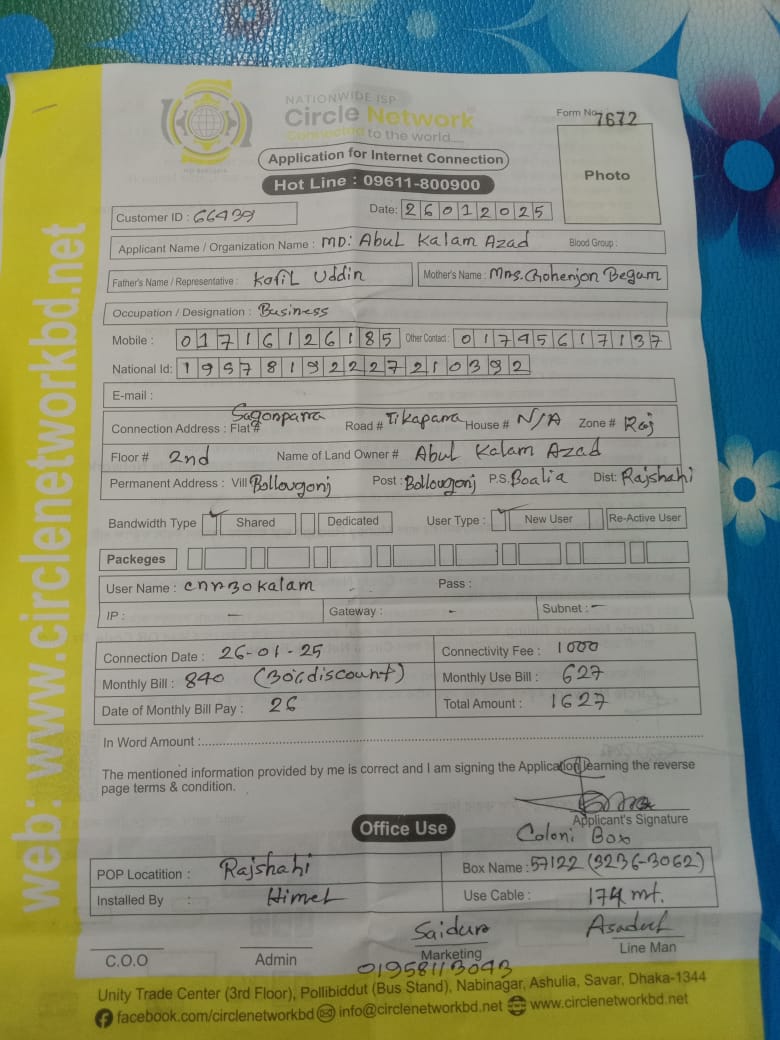 NATIONWIDE ISP
Circle Network
Connecting to the world....
Form No 7672
Application for Internet Connection
Hot Line : 09611-800900
Photo
Customer ID : 66439
Date: 26012025
Applicant Name / Organization Name : MD: Abul Kalam Azad Blood Group :
Father's Name / Representative : Kofil Uddin Mother's Name : Mrs. Gohenjon Begum
Occupation / Designation : Business
Mobile : 01716126185 Other Contact : 01745617137
National Id: 19578192227210392
E-mail :
Connection Address : Flat# Sagorparra Road # Tikaparra House # N/A Zone # Raj
Floor # 2nd Name of Land Owner # Abul Kalam Azad
Permanent Address : Vill Bollougonj Post : Bollougonj P.S. Boalia Dist: Rajshahi
Bandwidth Type ✓ Shared Dedicated User Type : ✓ New User Re-Active User
Packeges
User Name : cnr30kalam Pass :
IP : - Gateway : - Subnet : -
Connection Date : 26-01-25 Connectivity Fee : 1000
Monthly Bill : 840 (30% discount) Monthly Use Bill : 627
Date of Monthly Bill Pay : 26 Total Amount : 1627
In Word Amount :
The mentioned information provided by me is correct and I am signing the Application learning the reverse
page terms & condition.
Applicant's Signature
Office Use
Coloni Box
POP Locatition : Rajshahi Box Name : 57122 (3236-3062)
Installed By : Himel Use Cable : 174 mt.
Saidur Asadul
C.O.O Admin Marketing Line Man
01958113043
Unity Trade Center (3rd Floor), Pollibiddut (Bus Stand), Nabinagar, Ashulia, Savar, Dhaka-1344
facebook.com/circlenetworkbd info@circlenetworkbd.net www.circlenetworkbd.net
web: www.circlenetworkbd.net